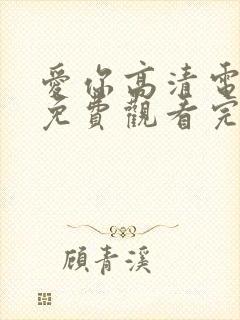 愛你高清電
免費觀看完
顧青溪